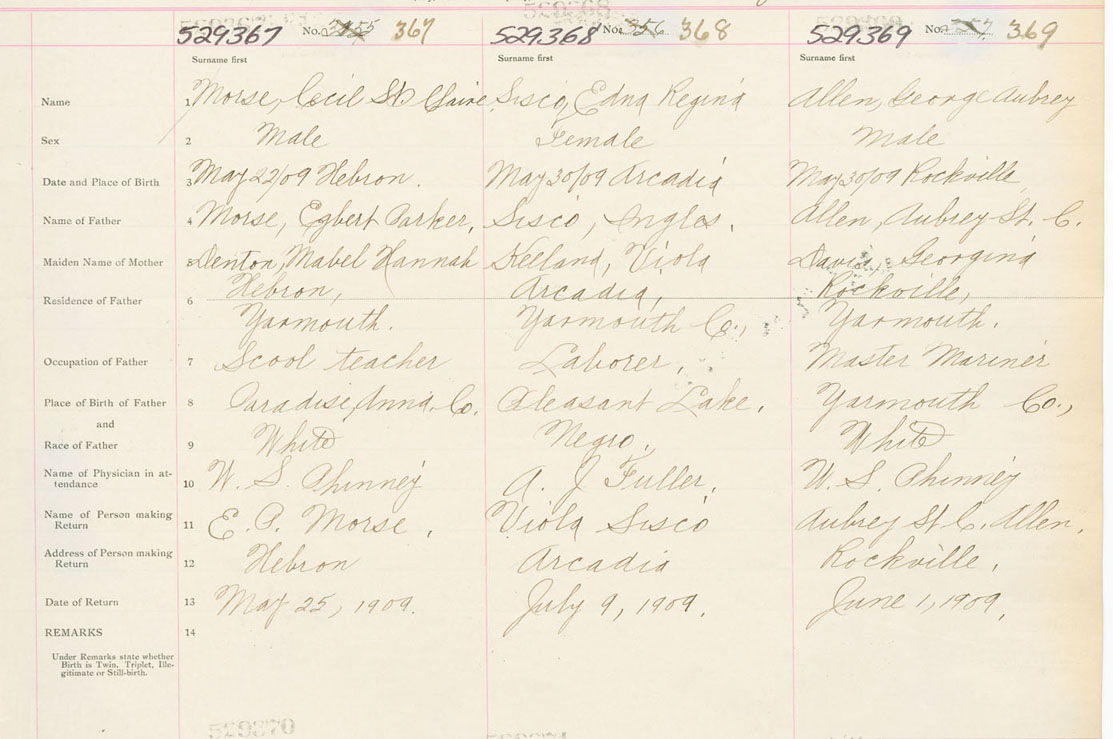 529367 No. 367 529368 No. 356 368 529369 No. 369
Surname first Surname first Surname first
Name 1 Morse, Cecil St. Claire Sisco, Edna Regina Allen, George Aubrey
Sex 2 Male Female Male
Date and Place of Birth 3 May 22/09 Hebron. May 30/09 Arcadia May 30/09 Rockville
Name of Father 4 Morse, Egbert Parker, Sisco, Ingles. Allen, Aubrey St. C.
Maiden Name of Mother 5 Denton, Mabel Hannah Kelland, Viola Davis, Georgina
Hebron, Arcadia, Rockville,
Residence of Father 6
Yarmouth. Yarmouth Co., Yarmouth.
Occupation of Father 7 Scool teacher Laborer, Master Mariner
Place of Birth of Father 8 Paradise, Anna. Co. Pleasant Lake. Yarmouth Co.,
and
Race of Father 9 White Negro. White
Name of Physician in at-
tendance 10 W. S. Phinney A. J Fuller. W. S. Phinney
Name of Person making
Return 11 E. P. Morse, Viola Sisco Aubrey St C. Allen.
Address of Person making
Return 12 Hebron Arcadia Rockville.
Date of Return 13 May 25, 1909. July 9, 1909. June 1, 1909.
REMARKS 14
Under Remarks state whether
Birth is Twin, Triplet, Ille-
gitimate or Still-birth.
529370